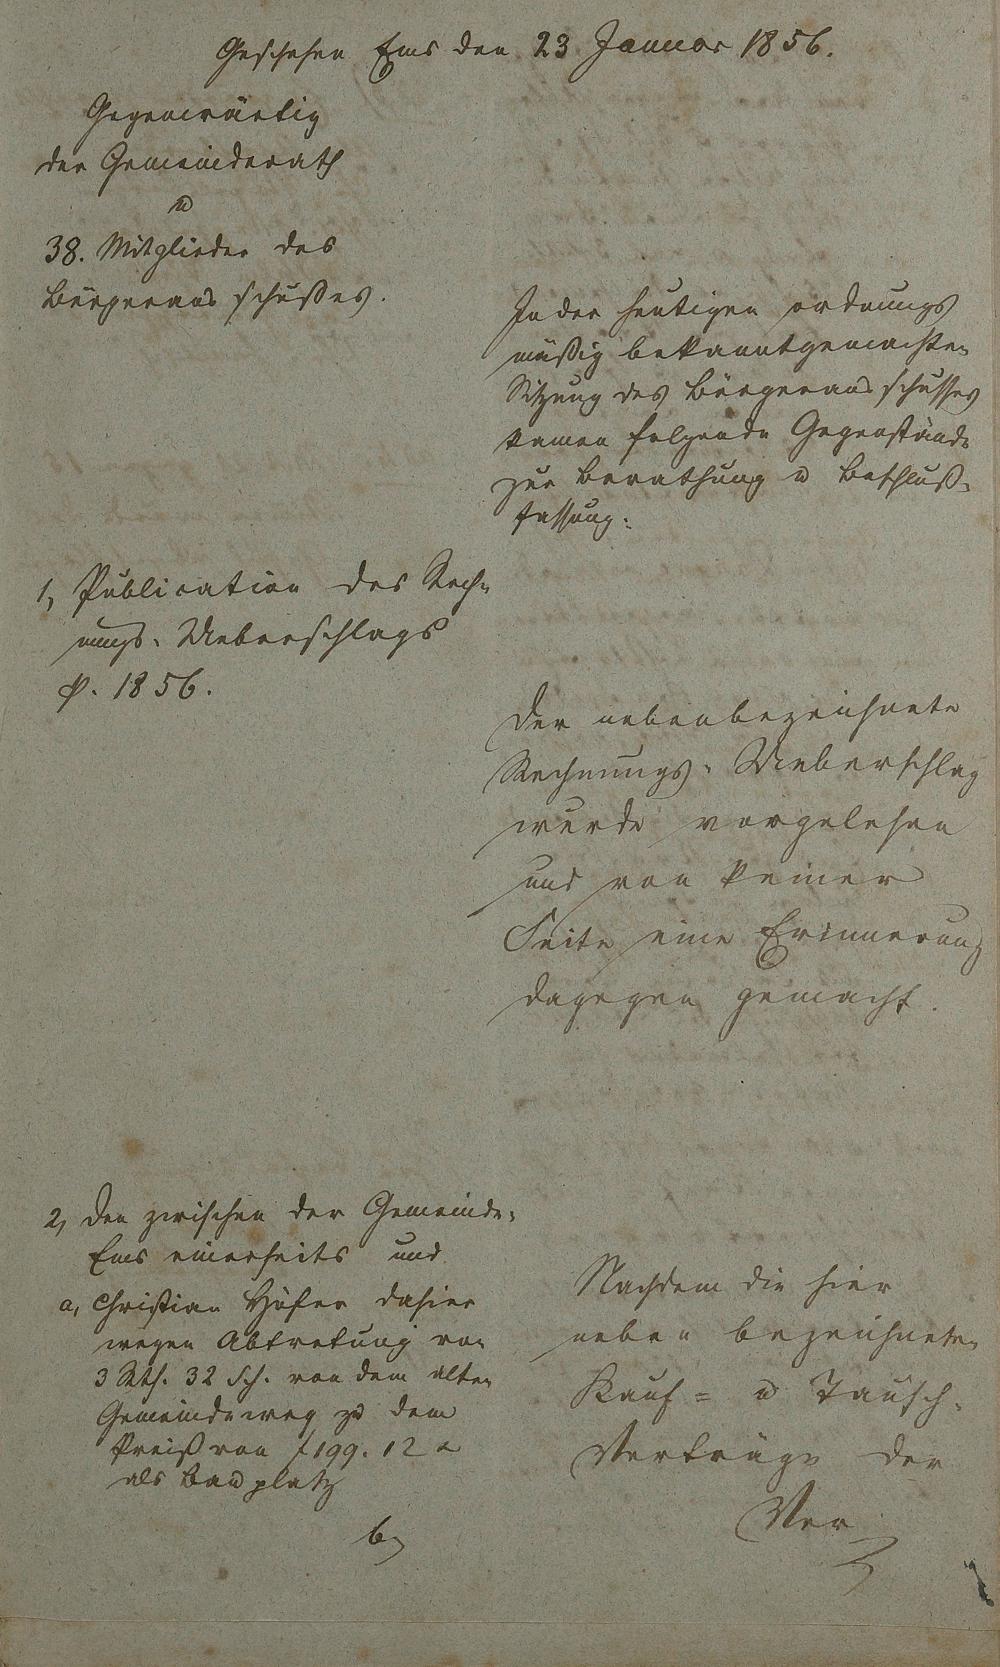 Geschehen Ems den 23 Januar 1856.
Gegenwärtig
der Gemeinderath
u
38. Mitglieder des
Bürgeraus schußes.
In der heutigen ordnungs
mäßig bekanntgemachten
Sitzung des Bürgeraus schusses
kamen folgende Gegenstände
zur Berathung u Beschluß-
fassung:
1, Publication des Rech-
nungs-Ueberschlags
p. 1856.
Der nebenbezeichnete
Rechnungs-Ueberschlag
wurde vorgelesen
und von keiner
Seite eine Erinnerung
dagegen gemacht.
2, den zwischen der Gemeinde-
Ems einerseits und
a, Christian Höfer dahier
wegen Abtretung von
3 Rth. 32 Sch. von dem alten
Gemeindeweg zu dem
Preiß von f 199. 12 x
als Bauplatz
b,
Nachdem die hier
neben bezeichneten
Kauf- u Tausch-
Verträge der
Ver